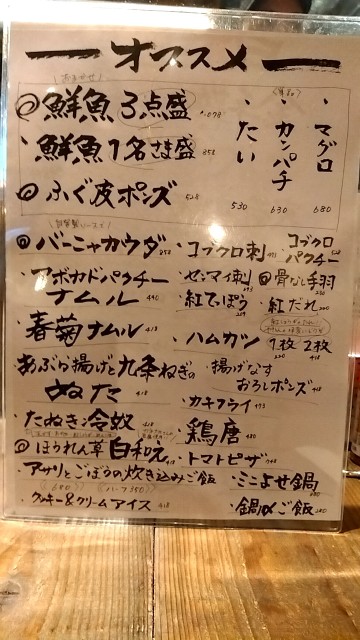 オススメ
◎鮮魚3点盛 1,078
・鮮魚1名さま盛 858
◎ふぐ皮ポンズ 528
・たい 530
・カンパチ 630
・マグロ 680
◎バーニャカウダ 858
・アボカドパクチーナムル 490
・春菊ナムル 418
・あぶら揚げと九条ねぎのぬた 418
・たぬき冷奴 418
◎ほうれん草白和え 418
・アサリとごぼうの炊き込みご飯
・クッキー&クリームアイス 418
・コブクロ刺
・コブクロパクチー 528
・センマイ刺
◎骨なし手羽
・紅てっぽう
・紅だれ
・ハムカツ 1枚 220 2枚 418
・揚げなすおろしポンズ 418
・カキフライ 493
・鶏唐 480
・トマトピザ
・ミニよせ鍋
・鍋〆ご飯